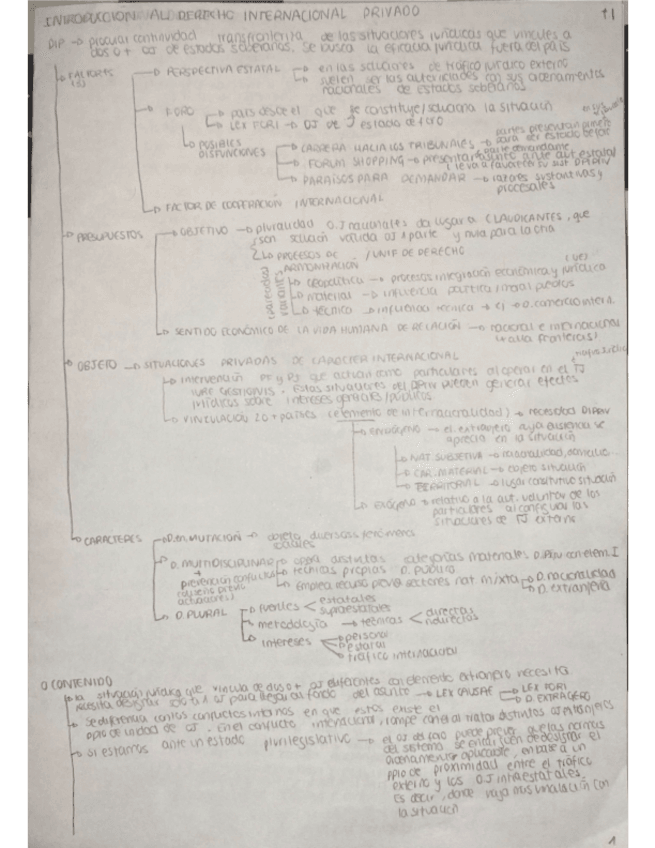 INTRODUCCION AL DERECHO INTERNACIONAL PRIVADO T1
DIP → procurar continuidad transfronteriza de las situaciones jurídicas que vincule a
dos o + OJ de estados soberanos. Se busca la eficacia jurídica fuera del país
FACTORES
(3)
PERSPECTIVA ESTATAL → en las soluciones de tráfico jurídico externo
suelen ser las autoridades con sus ordenamientos
nacionales de estados soberanos
FORO → país desde el que se constituye/soluciona la situación
LEX FORI → OJ de estado de foro
POSIBLES
DISFUNCIONES
CARRERA HACIA LOS TRIBUNALES →
FORUM SHOPPING → presentar asunto ante aut. estatal
PARAÍSOS PARA DEMANDAR → factores sustantivos y
procesales
FACTOR DE COOPERACIÓN INTERNACIONAL
PRESUPUESTOS
OBJETIVO → pluralidad OJ nacionales da lugar a CLAUDICANTES, que
son situación válida OJ 1 parte y nula para la otra
PROCESOS DE ARMONIZACIÓN / UNIF DE DERECHO
(UE)
Geopolítica → procesos integración económica y jurídica
material → influencia
técnica → influencia técnica → ej → D. comercio intern.
SENTIDO ECONÓMICO DE LA VIDA HUMANA DE RELACIÓN → nacional e internacional
(+ allá fronteras)
OBJETO → SITUACIONES PRIVADAS DE CARÁCTER INTERNACIONAL
Intervención PF y PJ que actúan como particulares al operar en el TJ
IURE GESTIONIS. Estas situaciones del DIPriv pueden generar efectos
jurídicos sobre intereses generales/públicos
VINCULACIÓN 2 o + países (elemento de internacionalidad) → necesidad DIPriv
ENDÓGENO → el. extranjero cuya existencia se
aprecia en la situación
NAT SUBJETIVA → nacionalidad, domicilio...
CAR. MATERIAL → objeto situación
TERRITORIAL → lugar constitutivo situación
exógeno → relativo a la aut. voluntad de los
particulares al configurar las
situaciones de TJ externo
CARACTERES
D. en MUTACIÓN → diversos fenómenos
sociales
D. MULTIDISCIPLINAR → opera distintas categorías materiales D. Priv con elem. I
+
técnicas propias D. público
Emplea sectores nat mixta → D. nacionalidad
D. extranjería
D. PLURAL
Fuentes < estatales
supraestatales
metodología → técnicas < directas
indirectas
intereses → personal
estatal
tráfico internacional
CONTENIDO
la situación jurídica que vincula de dos o + OJ diferentes con elemento extranjero necesita
designar para llegar al fondo del asunto → LEX CAUSAE → LEX FORI
D. EXTRANJERO
Se diferencia con los conflictos internos en que estos existe el
ppio de unidad de OJ. En el conflicto internacional, rompe con él al tratar distintos OJ
Si estamos ante un estado plurilegislativo → el OJ del foro puede prever que las normas
del sistema se encarguen de designar el
ordenamiento aplicable, en base a un
ppio de proximidad entre el tráfico
externo y los OJ infraestatales.
Es decir, donde haya más vinculación con
la situación
1